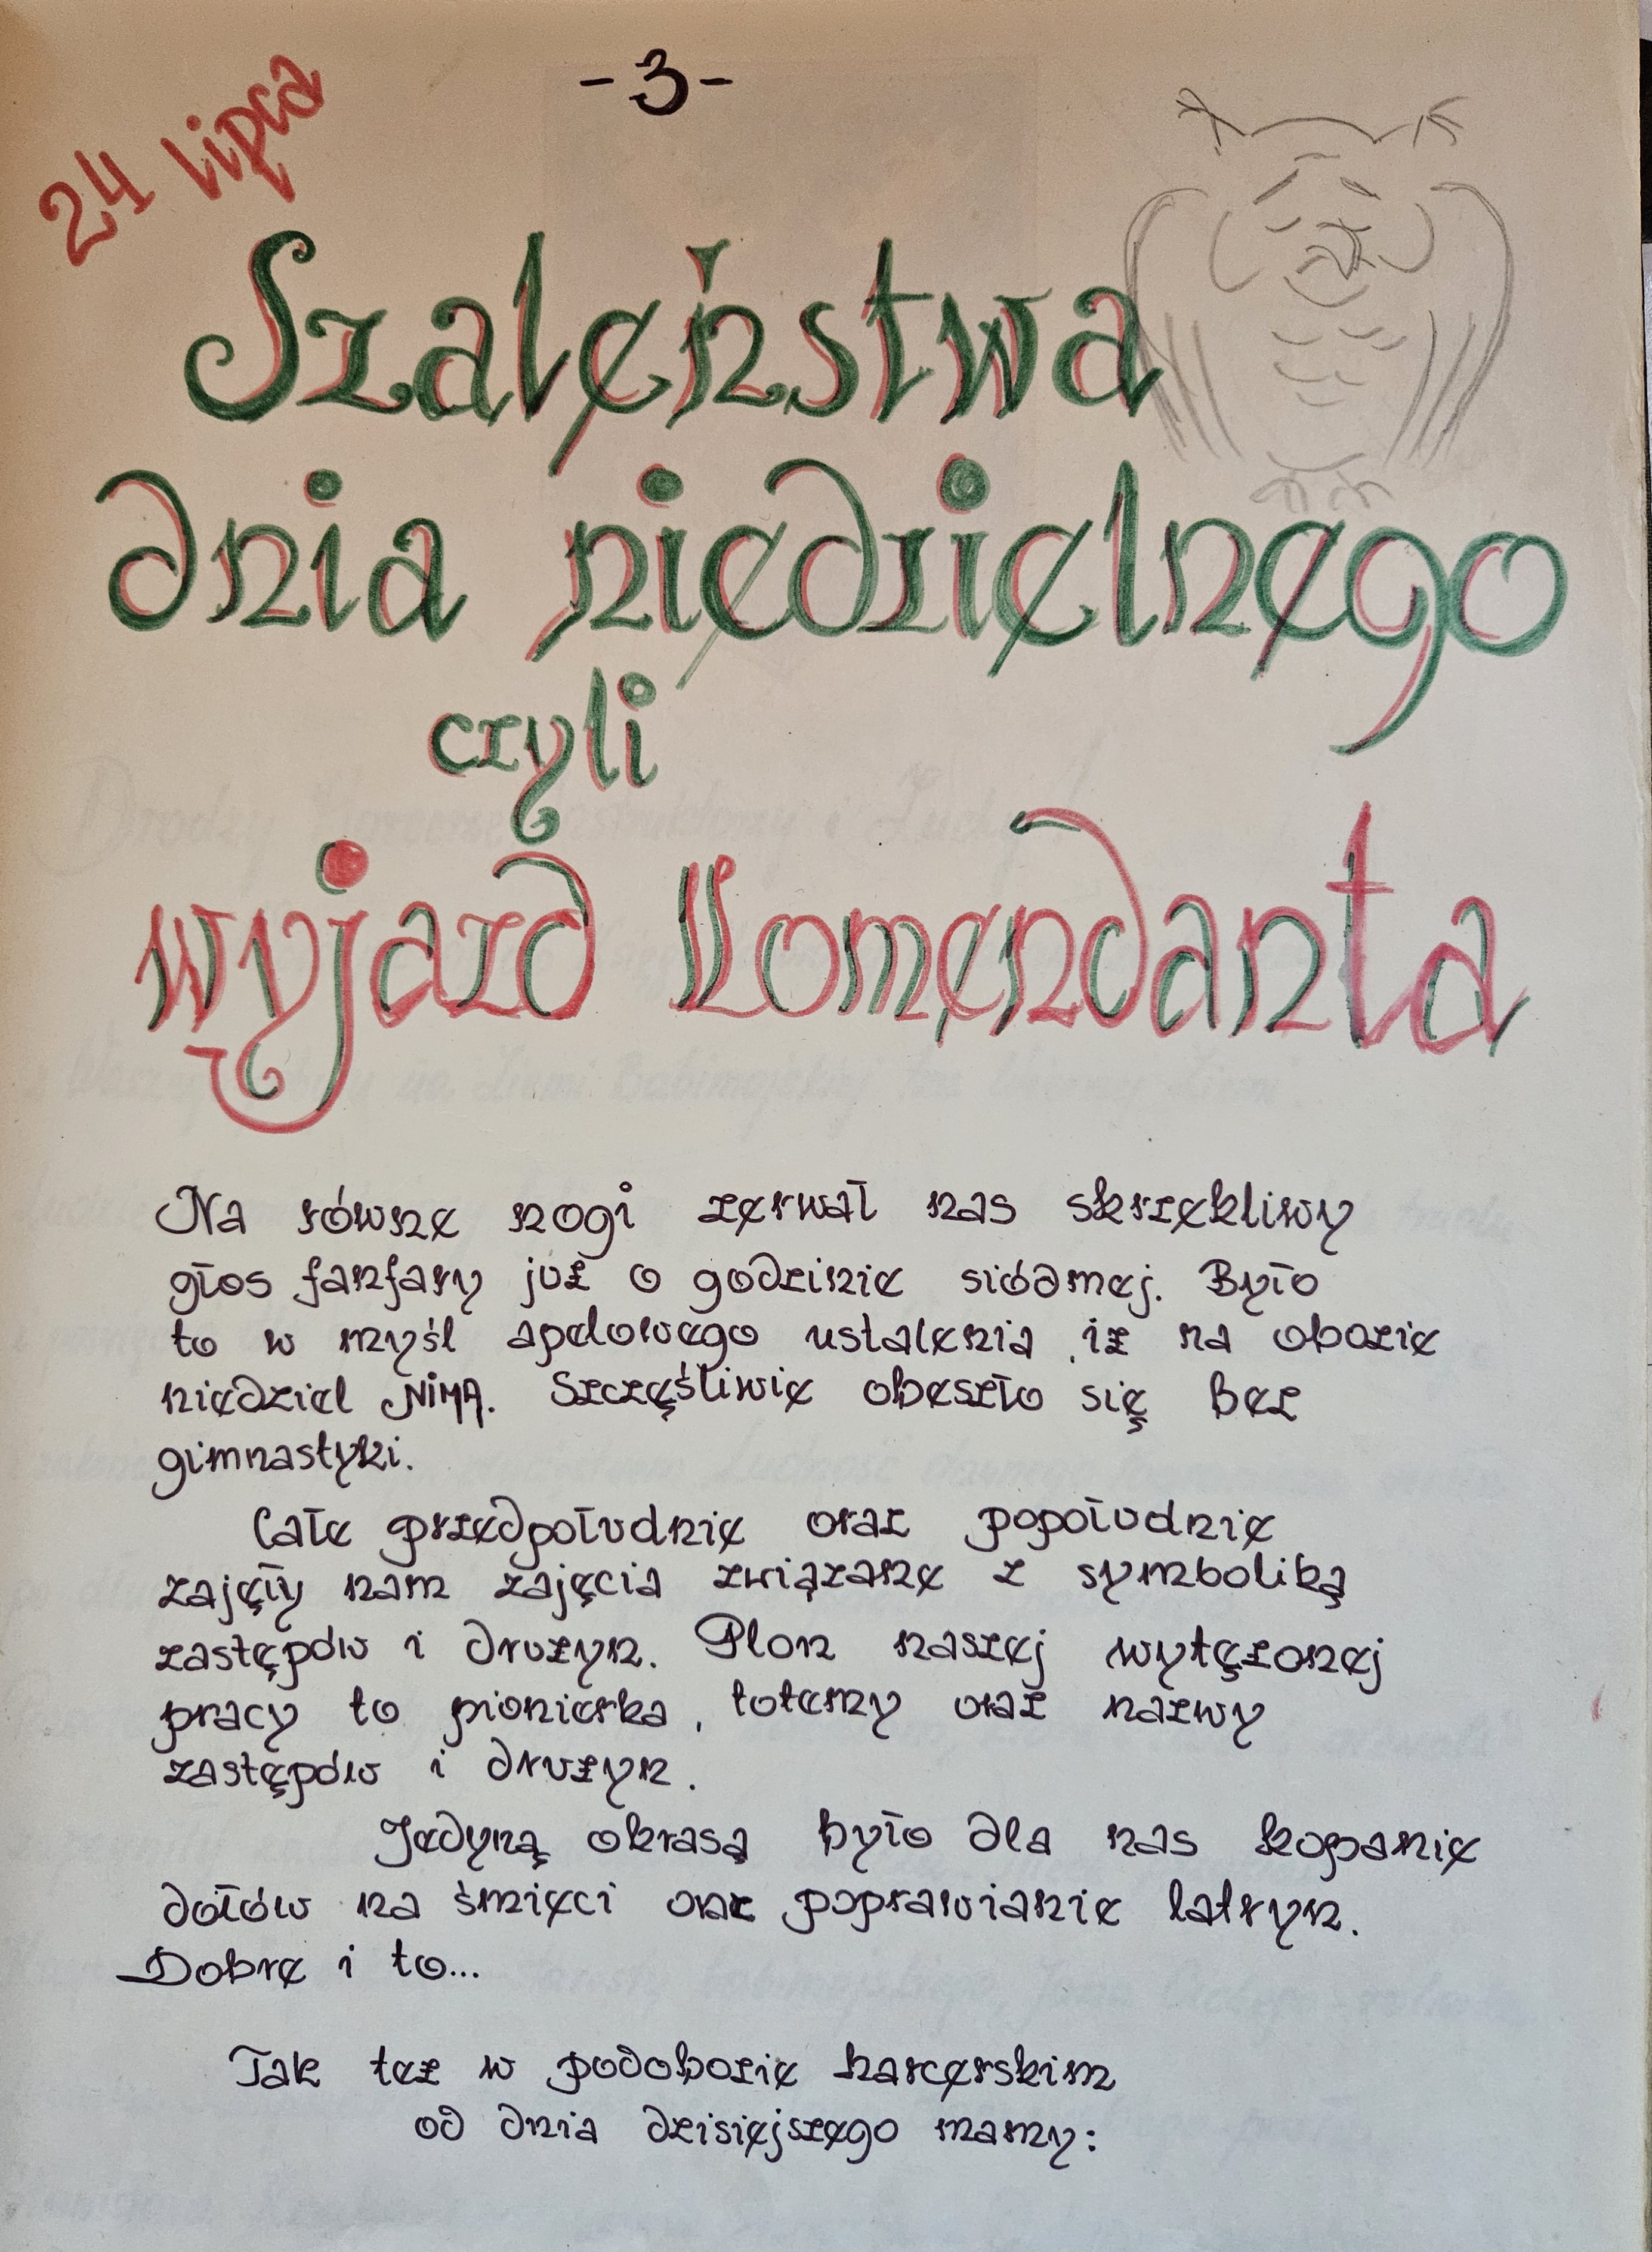 -3-
24 lipca
Szaleństwa
dnia niedzielnego
czyli
wyjazd Komendanta
Na równe nogi zerwał nas skrzekliwy
głos fanfary już o godzinie siódmej. Było
to w myśl apelowego ustalenia, iż na obozie
niedziel NIMA. Szczęśliwie obeszło się bez
gimnastyki.
Całe przedpołudnie oraz popołudnie
zajęły nam zajęcia związane z symboliką
zastępów i drużyn. Plon naszej wytężonej
pracy to pionierka, totemy oraz nazwy
zastępów i drużyn.
Jedyną okrasą było dla nas kopanie
dołów na śmieci oraz poprawianie latryn.
Dobre i to...
Tak też w podobozie harcerskim
od dnia dzisiejszego mamy: